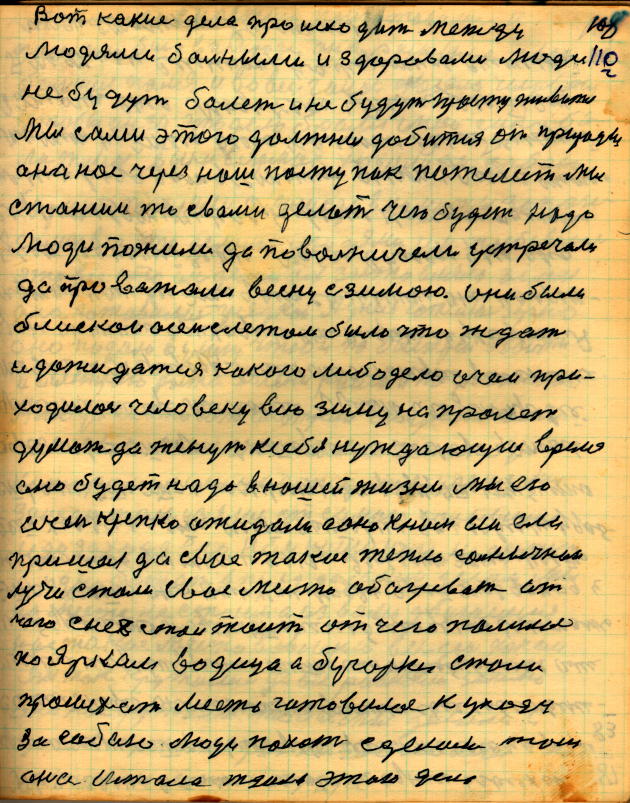 Вот какие дела происходит между 108
людями болными и здоровами люди 110
не будут болет и не будут просту живыми
Мы сами этого должны добится от природы
она нас через наш поступак пожелеит мы
станим то свами делат чего будет надо
Люди пожили да поволничели устречали
да проважали весну с зимою. они были
блиской осен слетом было что ждат
и дожидатся какого либо дело о чем при-
ходилося человеку всю зиму на пролет
думат да женут ксебя нуждающую время
оно будет надо внашей жизни мы его
очен крепко ожидали а оно кнам
пришол да свае такое тепло солнычнаи
лучи стали свое место обогреват от
чаго снех стал таит от чего полился
по Яркам водица а бугорки стали
место готовился куходу
за сабою люди пахат сделали
она этаго дела